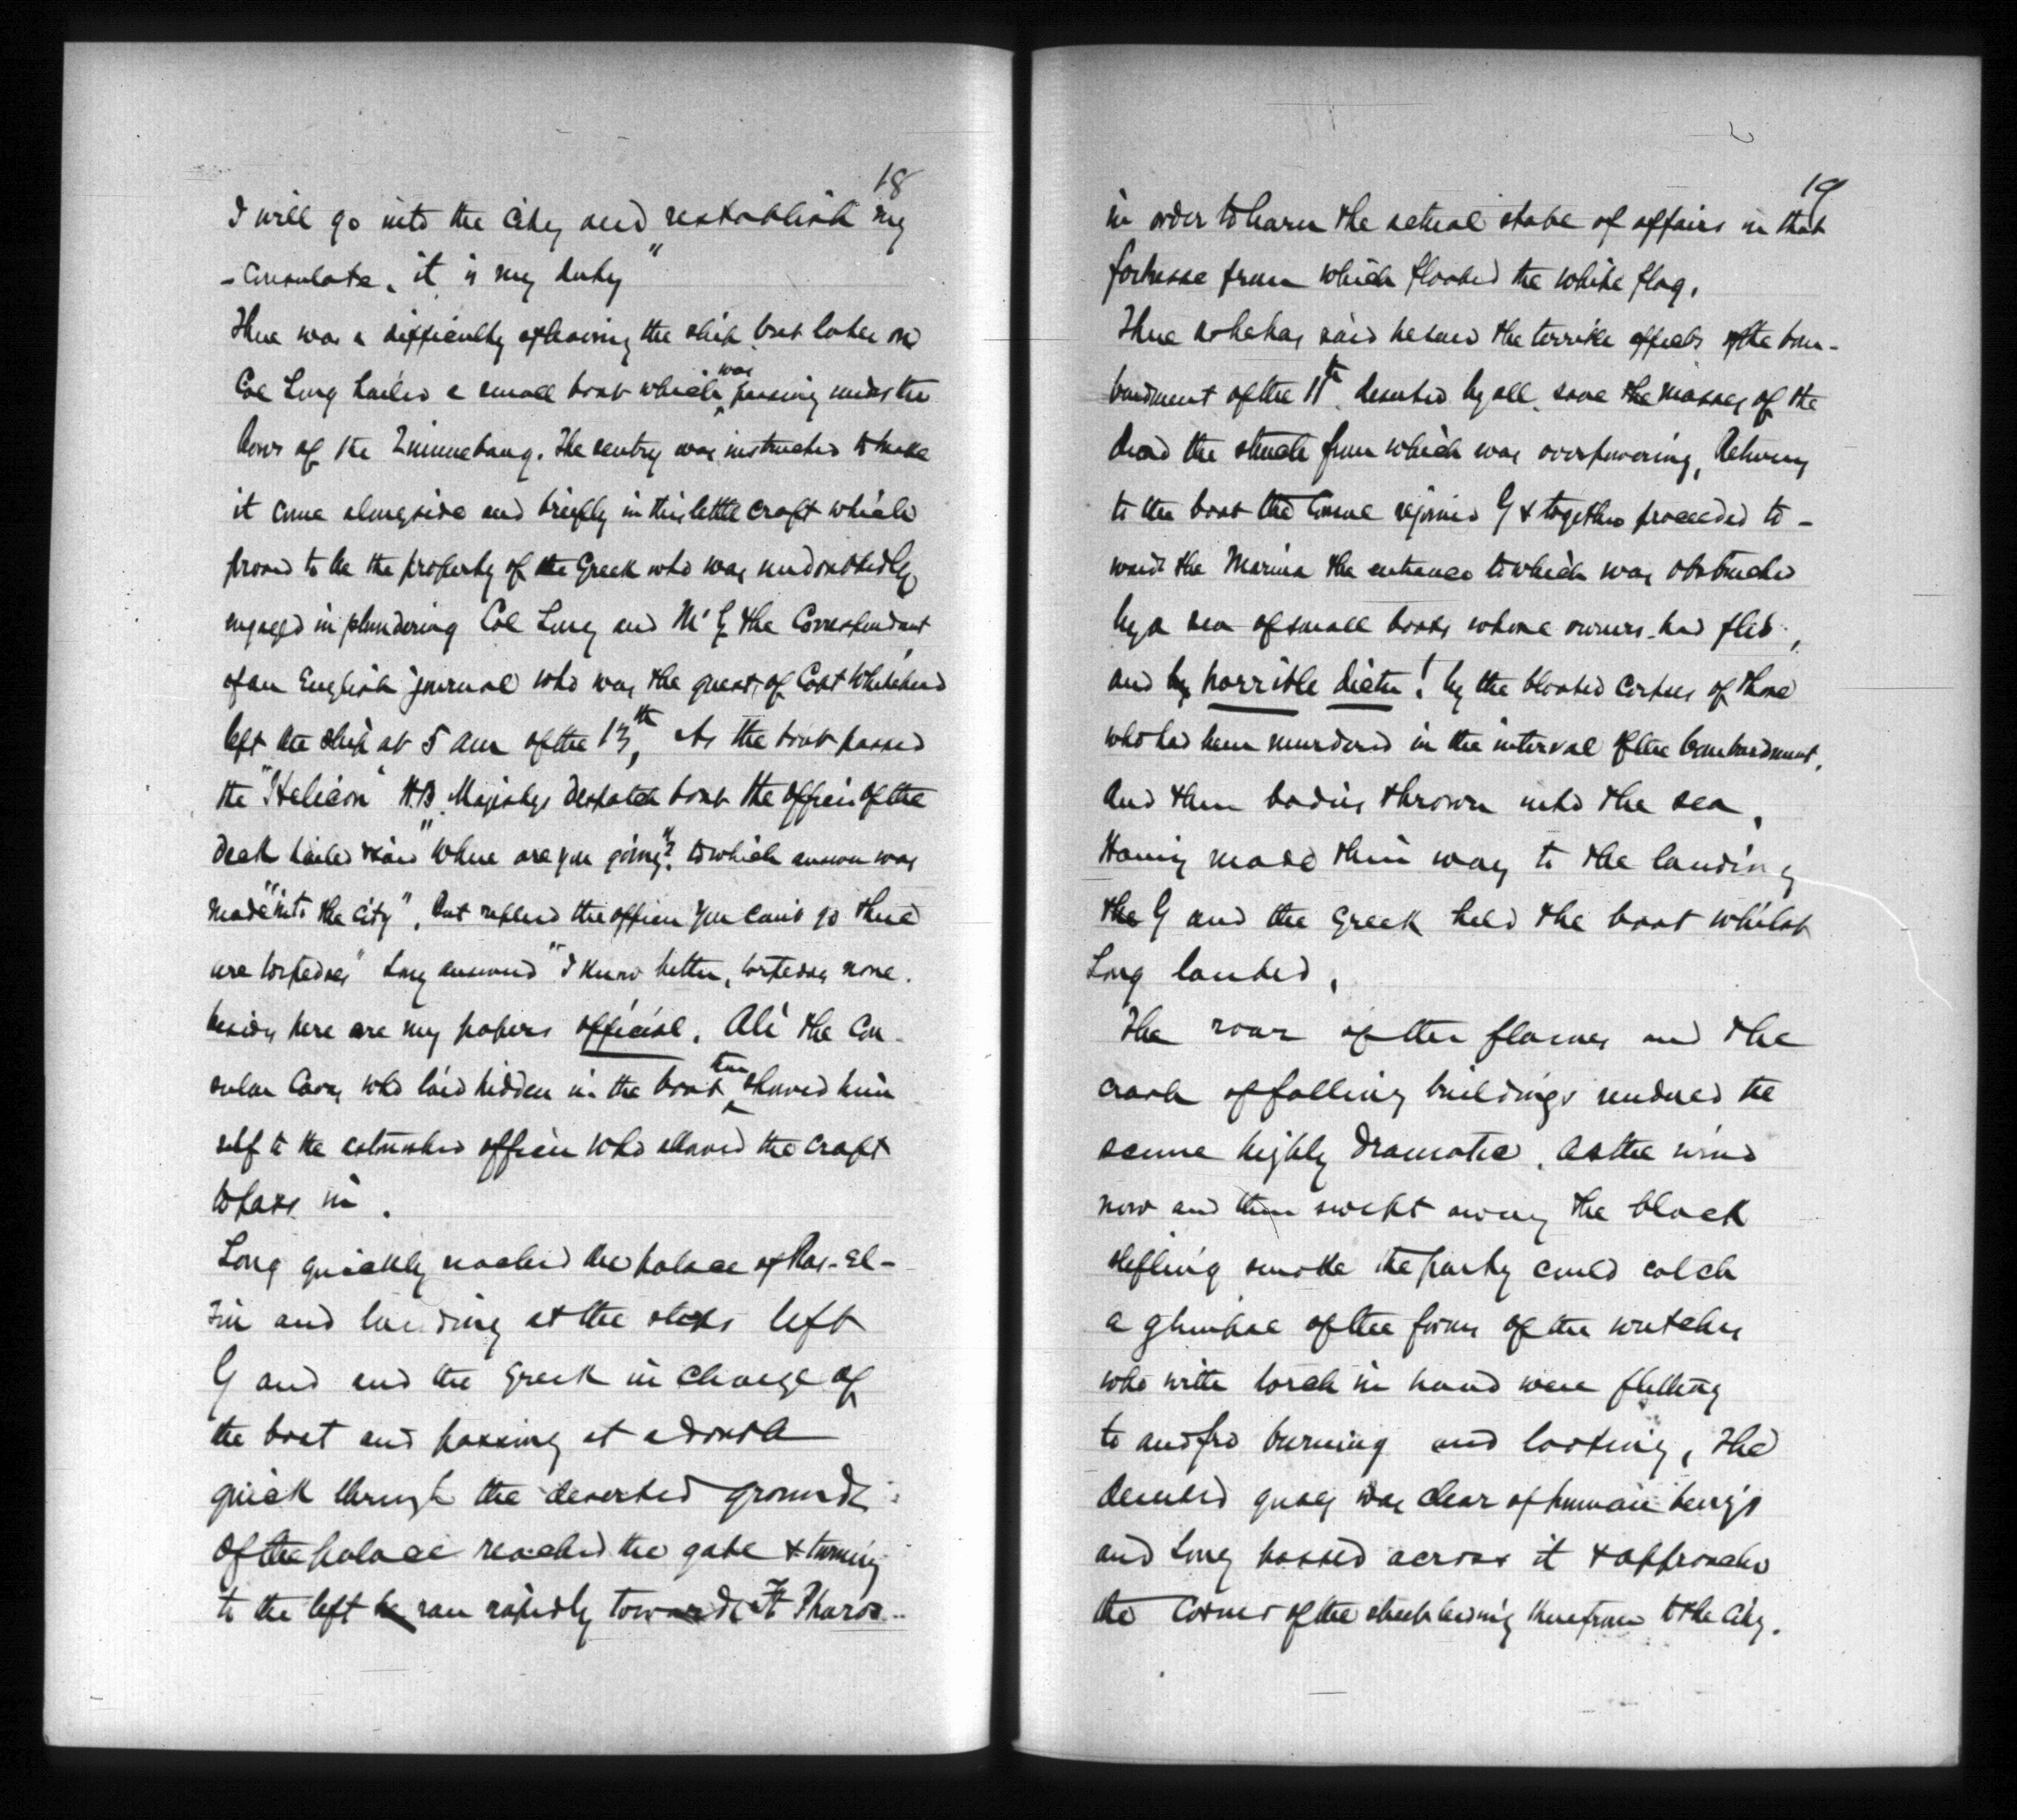 18
I will go into the City and restablish my
- Consulate, it is my duty"
There was a difficulty of leaving the ship but later on
Col Long hailed a small boat which was passing under the
bows of the Quinnebaug. The sentry was instructed to make
it come alongside and briefly in this little craft which
proved to be the property of the Greek who was undoubtedly
engaged in plundering Col Long and Mr G the Correspondant
of an English journal who was the guest of Capt Whitehead
left the ship at 5 am of the 13th, As the boat passed
the "Helicon" HB Majestys despatch boat the officer of the
deck hailed & said "Where are you going"? to which answer was
made "into the city". But replied the officer you can't go there
are torpedoes" Long answered "I know better, torpedoes none.
besides here are my papers official. Ali the Con-
sular Cavas who laid hidden in the boat then showed him
self to the astonished officer who allowed the craft
to pass in.
Long quickly reached the palace of Ras-El-
Tin and landing at the steps left
G and and the Greek in charge of
the boat and passing at a double
quick through the deserted grounds
of the palace reached the gate & turning
to the left he ran rapidly towards Ft Pharos--
19
in order to learn the actual state of affairs in that
fortresse from which floated the white flag.
There as he has said he saw the terrible effects of the bom-
bardment of the 11th deserted by all save the masses of the
dead the stench from which was overpowering, Returning
to the boat the Consul rejoined G & together proceeded to-
wards the Marina the entrance to which was obstructed
by a sea of small boats whose owners had fled,
and by horrible dictu! by the bloated corpses of those
who had been murdered in the interval of the bombardment,
And their bodies thrown into the sea,
Having made their way to the landing
the G and the Greek held the boat whilst
Long landed,
The roar of the flames and the
crash of falling buildings rendered the
scene highly dramatic. As the wind
now and then swept away the black
stifling smoke the party could catch
a glimpse of the forms of the wretches
who with torch in hand were flitting
to and fro burning and looting, The
deserted quay was clear of human beings
and Long passed across it & approached
the Corner of the street leading therefrom to the City.